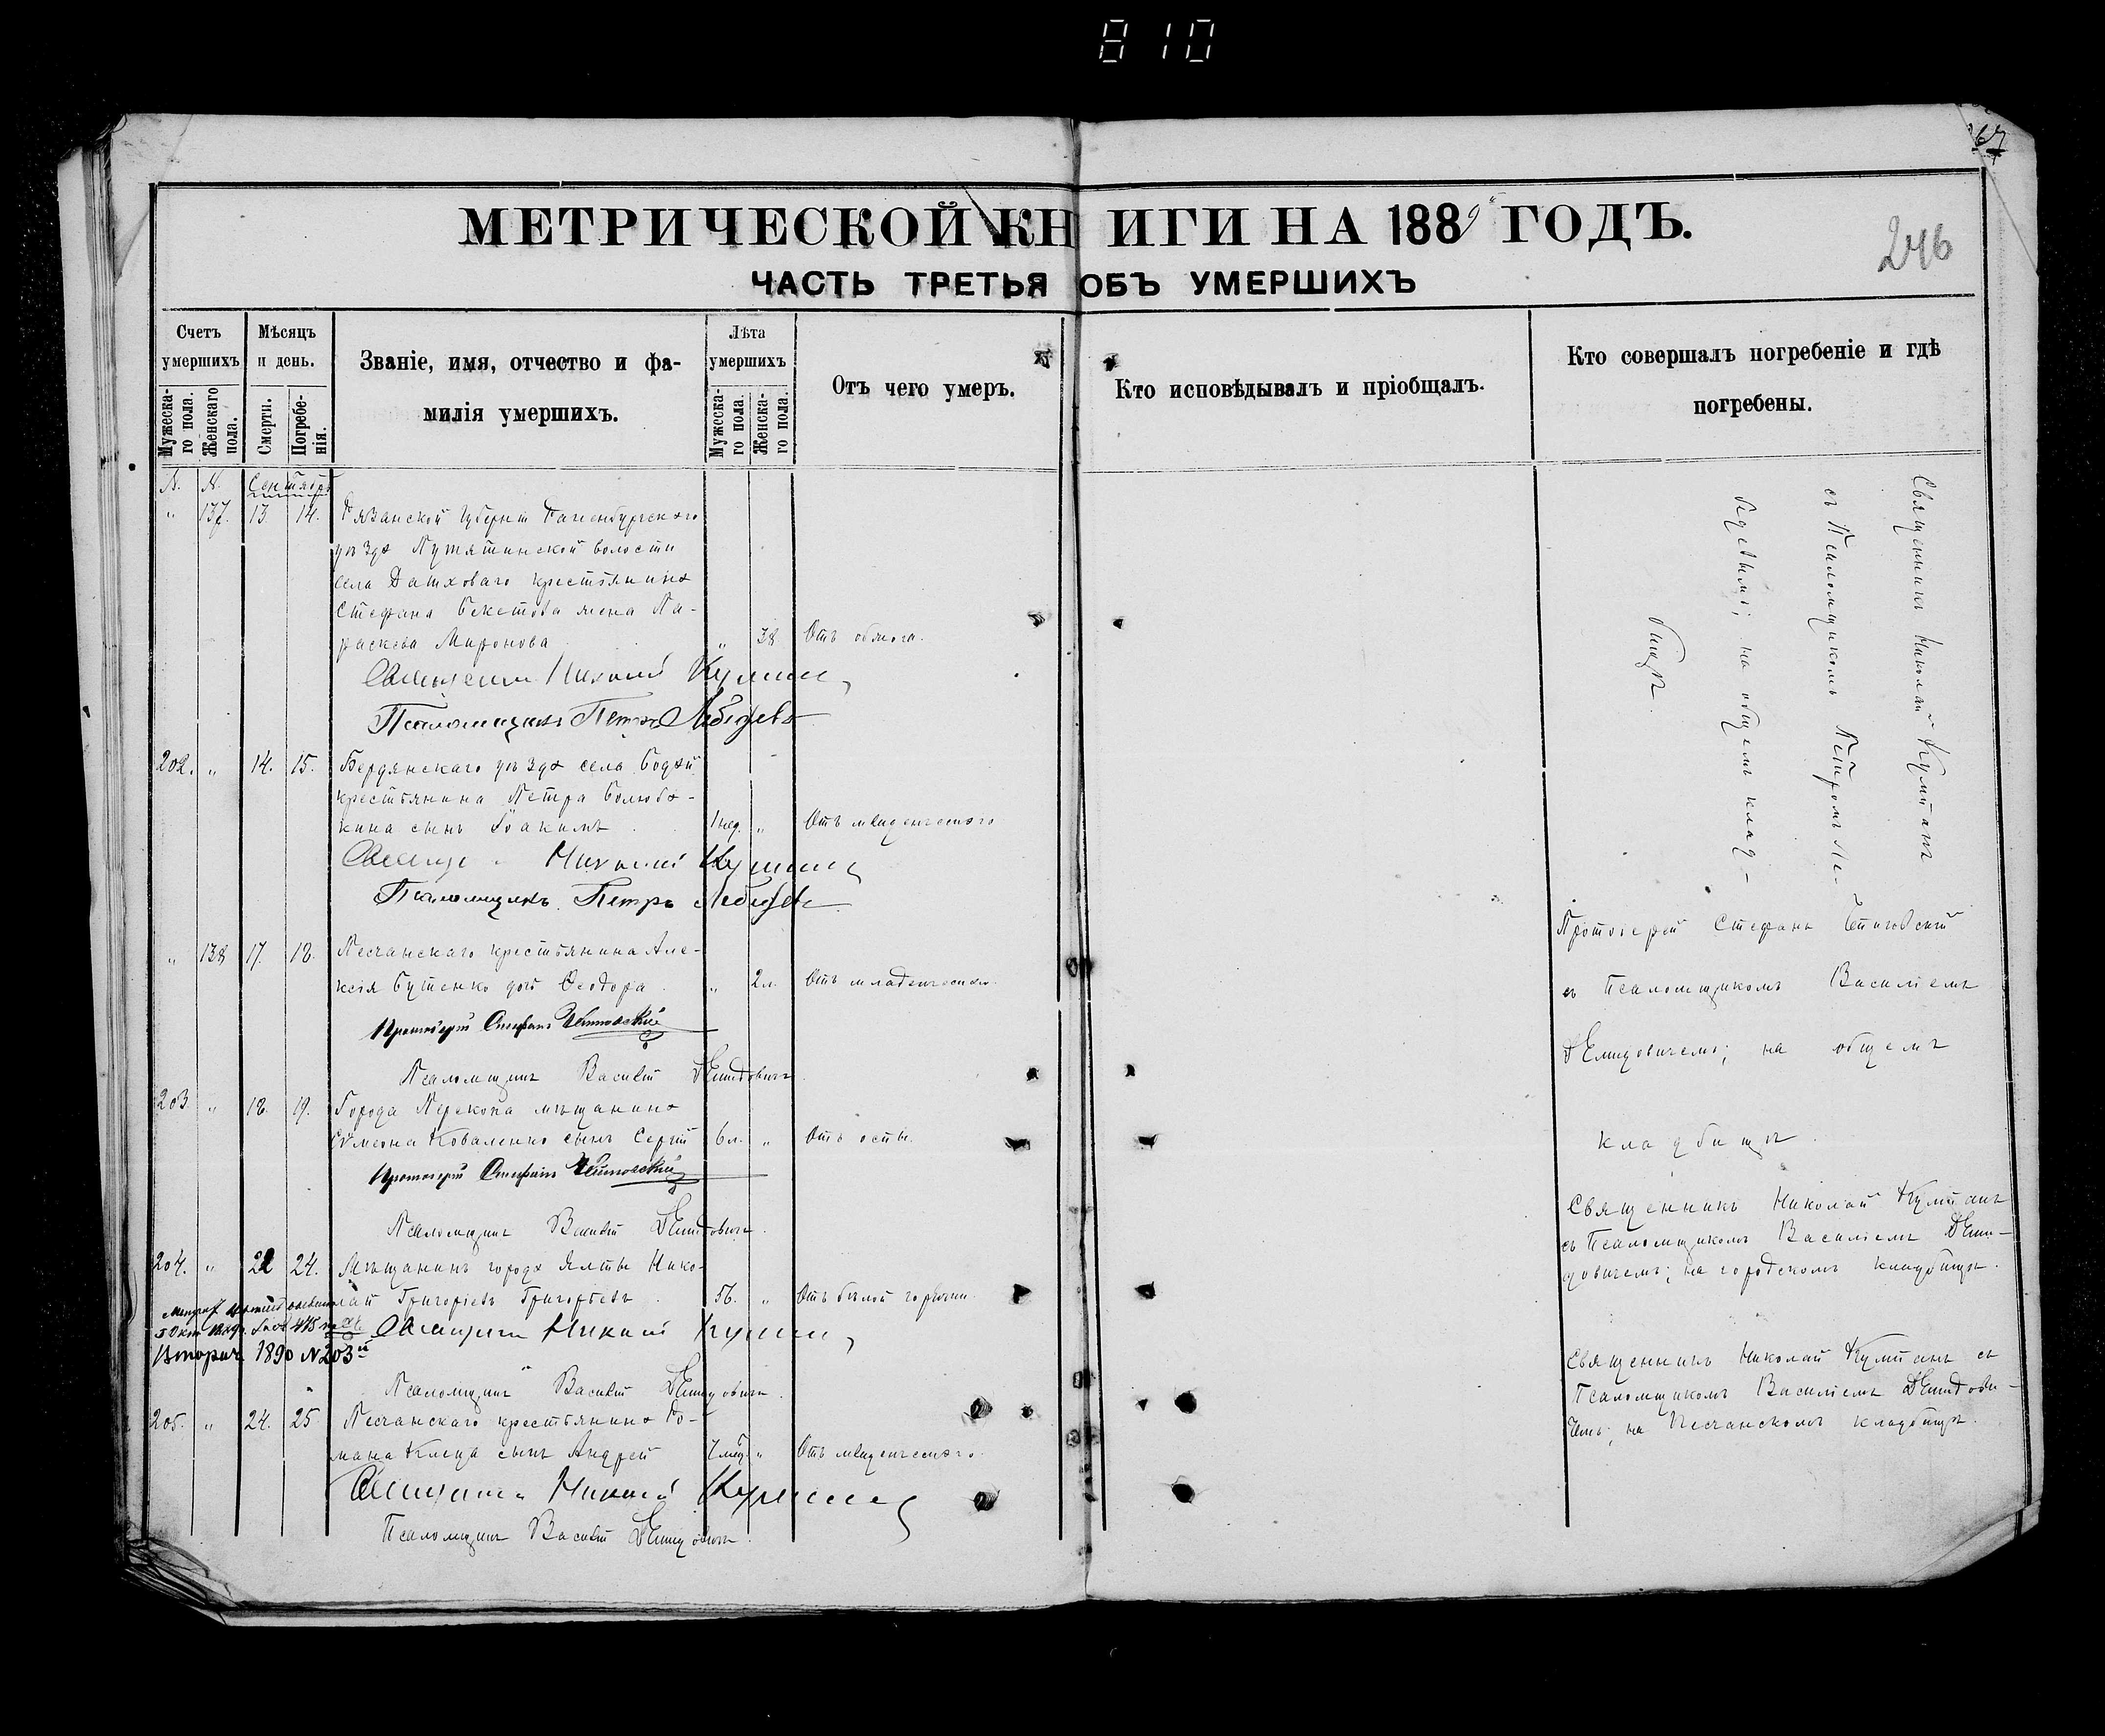 810
267
МЕТРИЧЕСКОЙ КНИГИ НА 1889 ГОДЪ.
246
ЧАСТЬ ТРЕТЬЯ ОБЪ УМЕРШИХЪ
Счетъ умершихъ
Мужеска-го пола.
Женскаго пола.
Мѣсяцъ и день.
Смерти.
Погребе-нія.
Званіе, имя, отчество и фа-
милія умершихъ.
Лѣта умершихъ
Мужеска-го пола.
Женска-го пола.
Отъ чего умеръ.
Кто исповѣдывалъ и пріобщалъ.
Кто совершалъ погребеніе и гдѣ
погребены.
N. N. Сентябрь
" 137. 13. 14. Рязанской губерніи Раненбургскаго
уѣзда Путятинской волости
села крестьянина
Стефана Бекетова жена Па-
раскева Миронова " 38 Отъ обжога.
Священникъ Николай
Псаломщикъ Петръ Лебедевъ
202. " 14. 15. Бердянскаго уѣзда села
крестьянина Петра
кина сынъ Іоакимъ 1 нед. " Отъ младенческаго
Николай
Псаломщикъ Петръ Лебедевъ
Священникъ Николай
съ Псаломщикомъ Петромъ Ле-
бедевымъ; на общемъ клад-
бищѣ.
" 138 17. 18. Песчанскаго крестьянина Але-
ксія Бутенко дочь Ѳеодора " 2 л. Отъ младенческаго.
Протоіерей Стефанъ
Псаломщикъ Василій Демидовичъ
Протоіерей Стефанъ
съ Псаломщикомъ Василіемъ
Демидовичемъ; на общемъ
кладбищѣ.
203 " 18. 19. Города Перекопа мѣщанина
Сѵмеона Коваленко сынъ Сергій 6 л. " Отъ оспы.
Протоіерей Стефанъ
Псаломщикъ Василій Демидовичъ.
204. " 22 24. Мѣщанинъ города Ялты Нико-
лай Григоріевъ Григорьевъ 56. " Отъ бѣлой горячки.
Вторич. 1890 N203
Священникъ Николай
Псаломщикъ Василій Демидовичъ.
Священникъ Николай
съ Псаломщикомъ Василіемъ Деми-
довичемъ; на городскомъ кладбищѣ.
205. " 24. 25 Песчанскаго крестьянина Ро-
мана сынъ Андрей " Отъ младенческаго.
Николай
Псаломщикъ Василій Демидовичъ.
Священникъ Николай съ
Псаломщикомъ Василіемъ Демидови-
чемъ; на Песчанскомъ кладбищѣ.